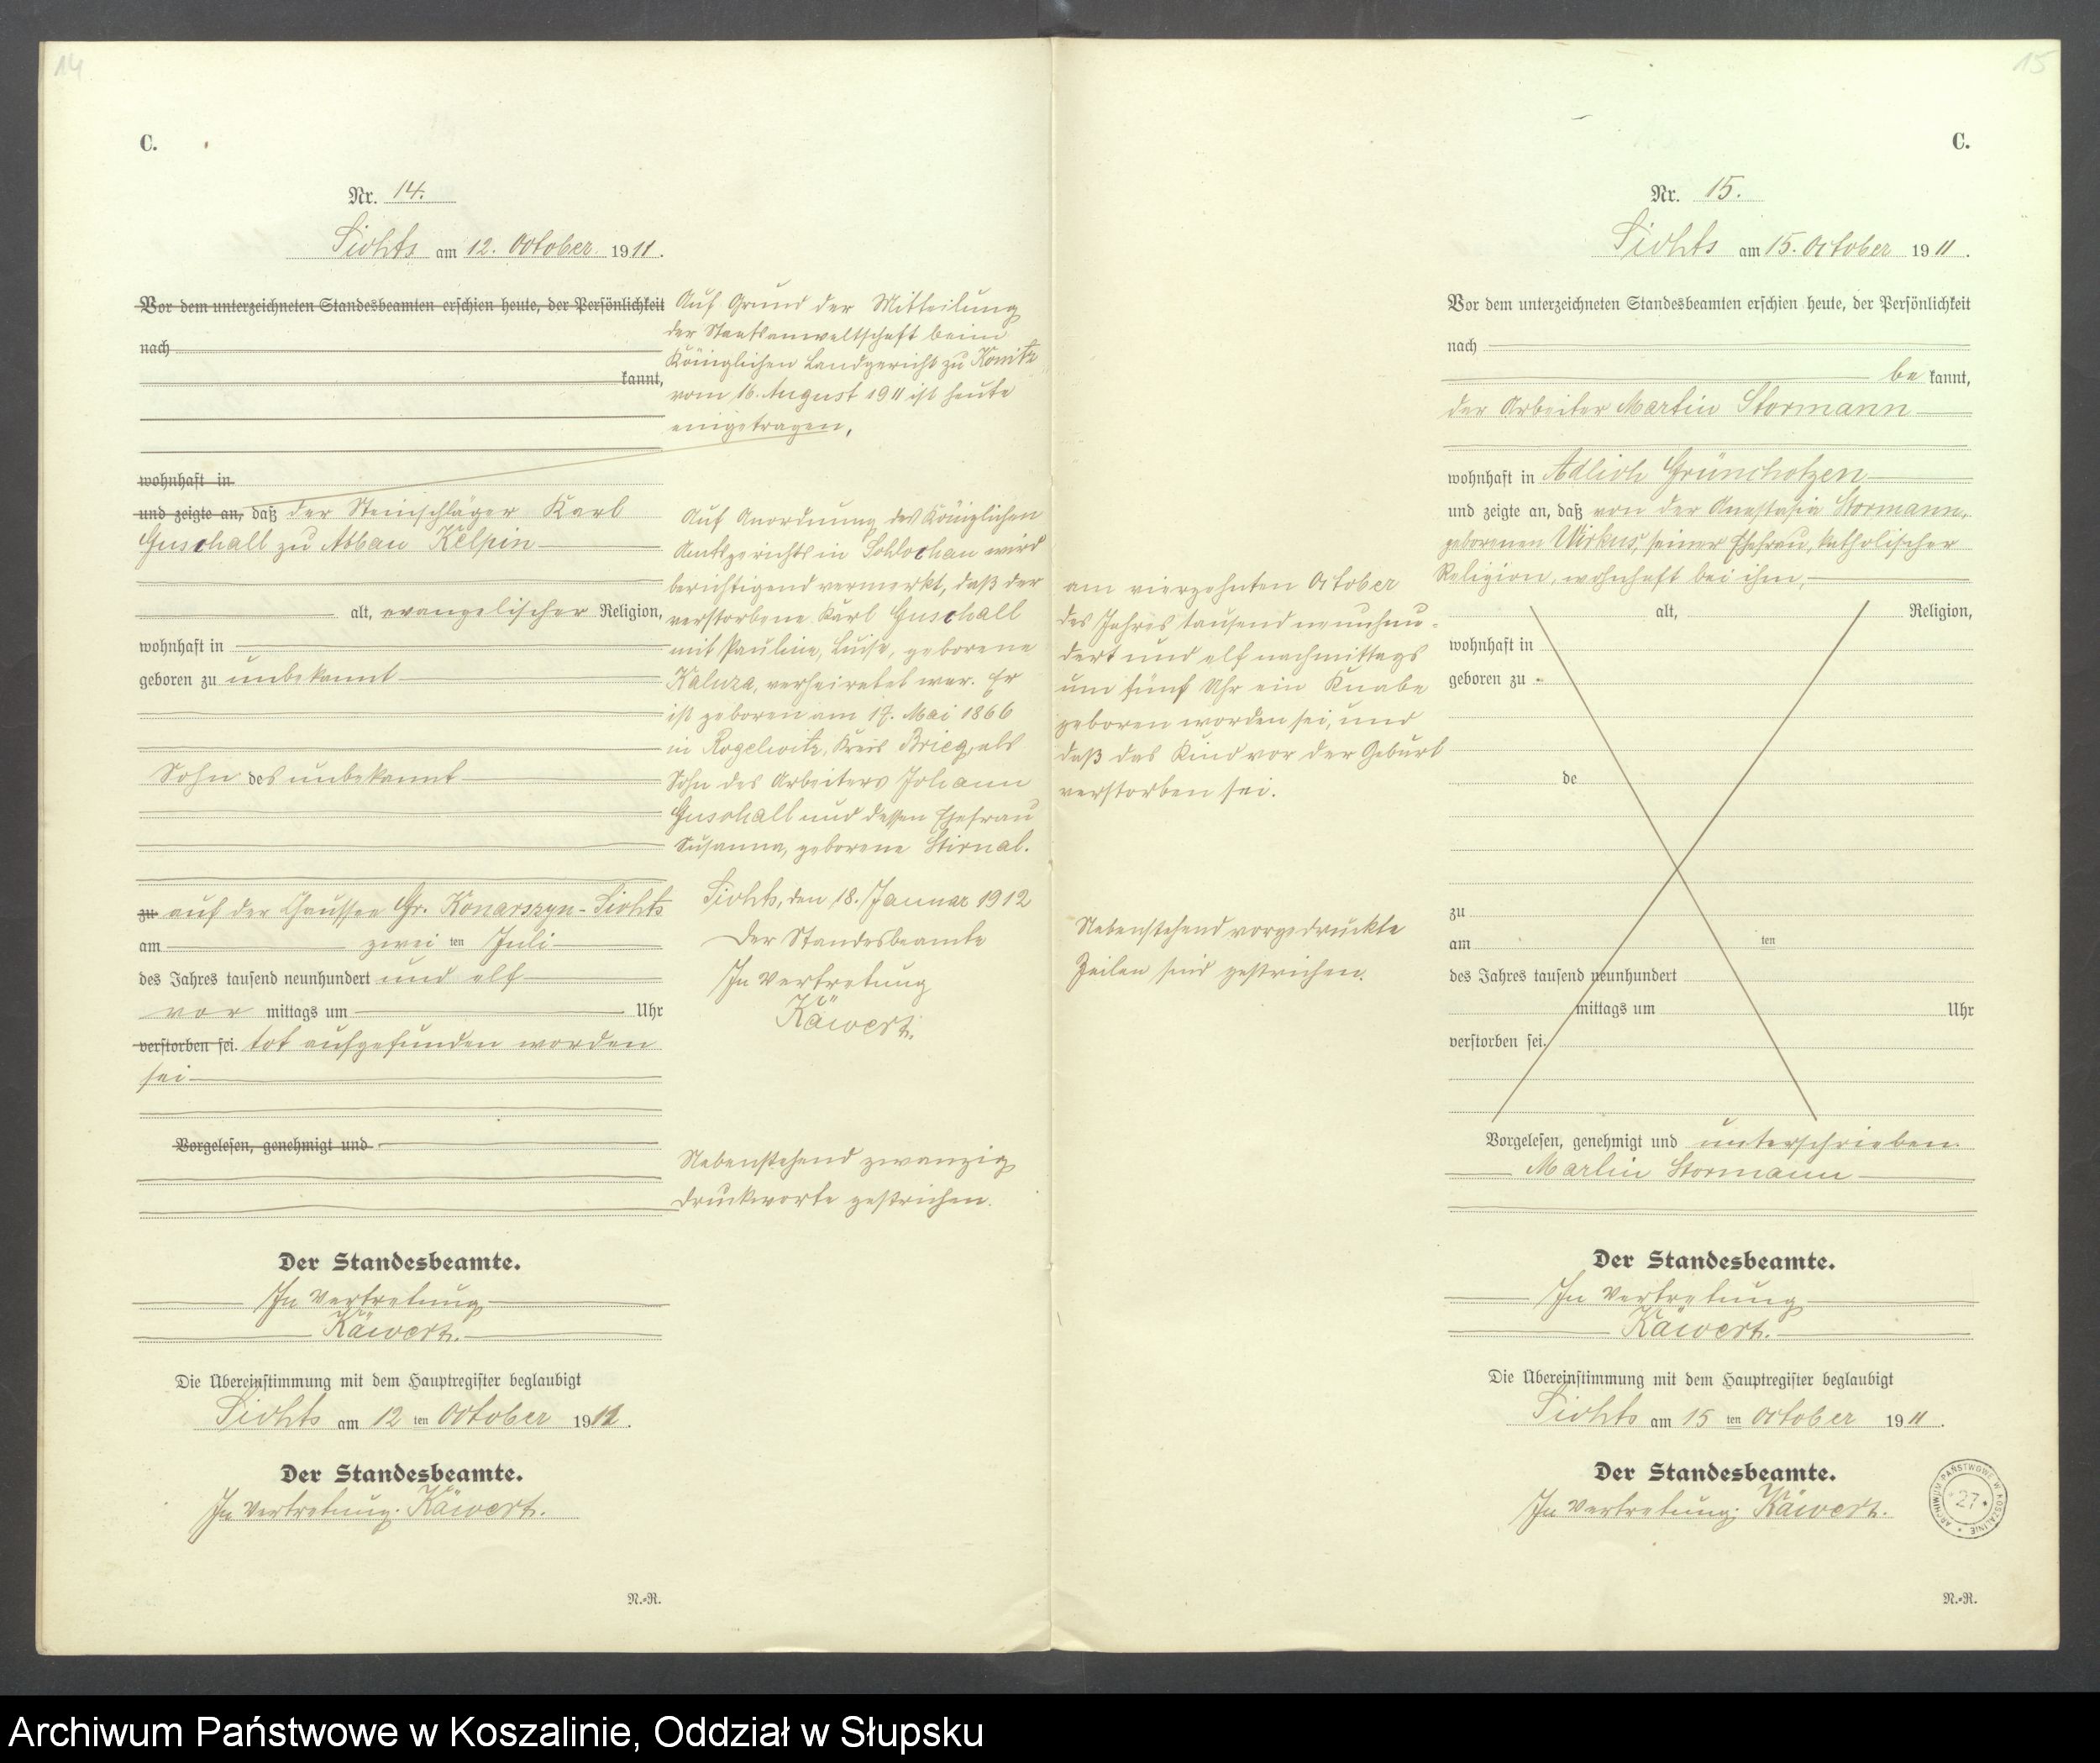 14
C.
Nr. 14.
Lichts am 12. October 1911.
Vor dem unterzeichneten Standesbeamten erschien heute, der Persönlichkeit
nach
kannt,
wohnhaft in
und zeigte an, daß der Steinschläger Karl
Guschall zu Abbau Kelpin
alt, evangelischer Religion,
wohnhaft in
geboren zu unbekannt
Sohn des unbekannt
zu auf der Chaussee Gr. Konarszyn-Lichts
am zwei ten Juli
des Jahres tausend neunhundert und elf
vor mittags um Uhr
verstorben sei. tot aufgefunden worden
sei
Vorgelesen, genehmigt und
Der Standesbeamte.
In Vertretung
Käwert.
Die Übereinstimmung mit dem Hauptregister beglaubigt
Lichts am 12 ten October 1911.
Der Standesbeamte.
In Vertretung: Käwert.
N.-R.
Auf Grund der Mitteilung
der Staatsanwaltschaft beim
Königlichen Landgericht zu Konitz
vom 16. August 1911 ist heute
eingetragen,
Auf Anordnung des Königlichen
Amtsgerichts in Schlochau wird
berichtigend vermerkt, daß der
verstorbene Karl Guschall
mit Pauline, Luise, geborene
Kaluza, verheiratet war. Er
ist geboren am 17. Mai 1866
in Rogelwitz, Kreis Brieg, als
Sohn des Arbeiters Johann
Guschall und dessen Ehefrau
Susanna, geborene Stirnal.
Lichts, den 18. Januar 1912
Der Standesbeamte
In Vertretung
Käwert.
Nebenstehend zwanzig
Druckworte gestrichen.
15
C.
Nr. 15.
Lichts am 15. October 1911.
Vor dem unterzeichneten Standesbeamten erschien heute, der Persönlichkeit
nach
be kannt,
der Arbeiter Martin Stormann
wohnhaft in Adlich Grünchotzen
und zeigte an, daß von der Anastasia Stormann,
geborenen Wirkus, seiner Ehefrau, katholischer
Religion, wohnhaft bei ihm,
am vierzehnten October
des Jahres tausend neunhun-
dert und elf nachmittags
um fünf Uhr ein Knabe
geboren worden sei, und
daß das Kind vor der Geburt
verstorben sei.
Nebenstehend vorgedruckte
Zeilen sind gestrichen.
alt, Religion,
wohnhaft in
geboren zu
de
zu
am ten
des Jahres tausend neunhundert
mittags um Uhr
verstorben sei.
Vorgelesen, genehmigt und unterschrieben
Martin Stormann
Der Standesbeamte.
In Vertretung
Käwert.
Die Übereinstimmung mit dem Hauptregister beglaubigt
Lichts am 15 ten October 1911.
Der Standesbeamte.
In Vertretung: Käwert.
ARCHIWUM PAŃSTWOWE W KOSZALINIE
27
N.-R.
Archiwum Państwowe w Koszalinie, Oddział w Słupsku